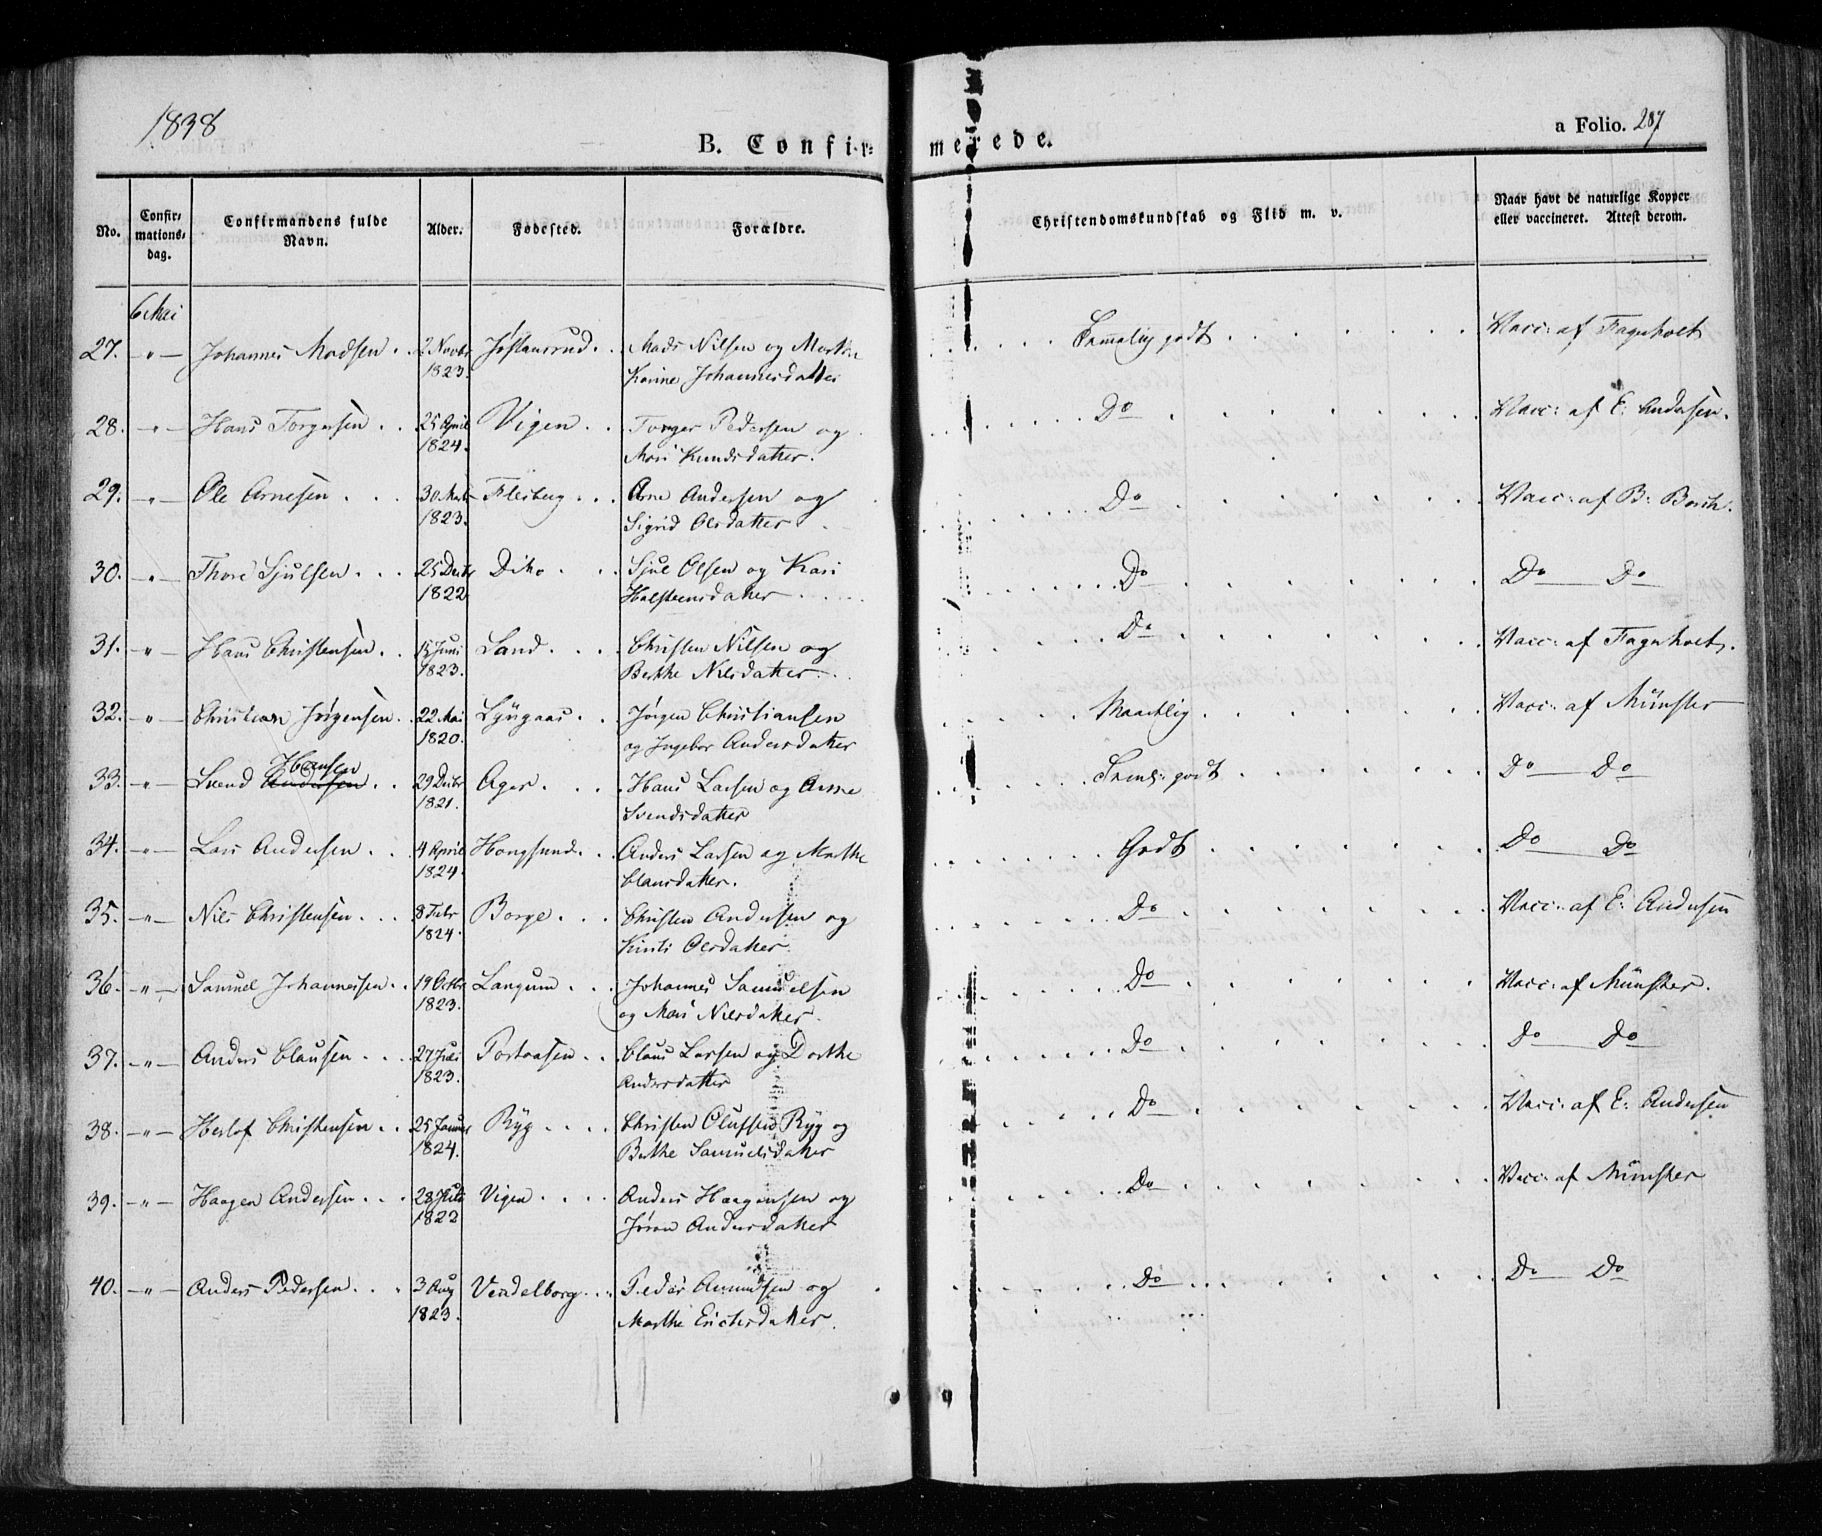 1838
B. Confirmerede.
a Folio. 287
No.
Confir-
mations-
dag.
Confirmandens fulde
Navn.
Alder.
Fødested.
Forældre.
Christendomskundskab og Flid m. v.
Naar havt de naturlige Kopper
eller vaccineret. Attest derom.
6 Mai
27. -"- Johannes Madsen . 2 Novbr 1823. Mads Nilsen og
Karine Johannesdatter
Temmelig godt Vacc: af Fagerholt
28. -"- Hans Torgersen . . 25 April 1824. Vigen . . Torger Pedersen og
Mari Knudsdatter.
Do Vacc: af E: Andersen.
29. -"- Ole Arnesen . . . 30 1823. Flesberg . . . Arne Andersen og
Sigrid Olsdatter
Do Vacc: af B: Borch.
30. -"- Thore Sjulsen . . . 25 Decbr 1822. Dito . . . Sjul Olsen og Kari
Halsteensdatter
Do Do Do
31. -"- Hans Christensen . . 15 Juni 1823. Land . . . . Christen Nilsen og
Berthe Nilsdatter . .
Do Vacc: af Fagerholt.
32. -"- Christian Jørgensen . . 22 Mai 1820. Lyngaas . . Jørgen Christiansen
og Ingebor Andersdatter
Maadelig Vacc: af Münster
Hansen
33. -"- Svend Andersen . . 29 Decbr 1821. Ager . . . . Hans Larsen og Anne
Svendsdatter
Teml: godt Do Do
34. -"- Lars Andersen . . . 4 April 1824. Hougsund . . . Anders Larsen og Marthe
Clausdatter.
Godt Do Do
35. -"- Nils Christensen . . . 8 Febr 1824. Borge . . . Christen Andersen og
Kirsti Olsdatter
Do Vacc: af E: Andersen
36. -"- Samuel Johannesen . . 19 Octbr 1823. Langum . . . Johannes Samuelsen
og Mari Nilsdatter.
Do Vacc: af Münster.
37. -"- Anders Clausen . . . . 27 Juli 1823. Portaasen . . Claus Larsen og Dorthe
Andersdatter
Do Do Do
38. -"- Herlof Christensen . . 25 Januar 1824. Ryg . . . . Christen Olufsen Ryg og
Berthe Samuelsdatter
Do Vacc: af E: Andersen
39. -"- Haagen Andersen . . . 28 Juli 1822 Vigen . . . . Anders Haagensen og
Jøran Andersdatter
Do Vacc: af Münster
40. -"- Anders Pedersen . . . 3 Aug 1823. Vendelborg . . . Peder Amundsen og
Marthe Erichsdatter.
Do Do Do